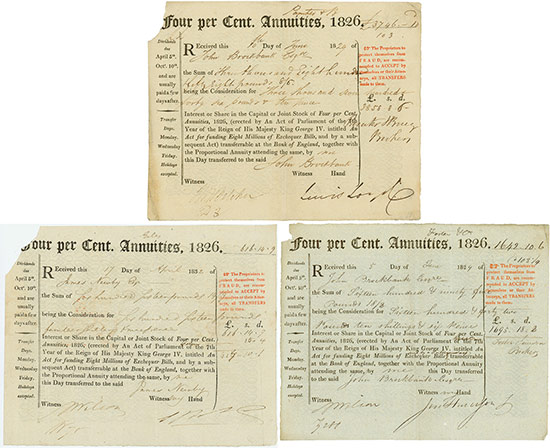 Four per Cent. Annuities, 1826.
£3746
103
Dividends due April 5th. Oct. 10th. and are usually paid a few days after.
Transfer Days. Monday, Wednesday, Friday. Holidays excepted.
Received this Day of June 1829 of
John Brockbank Esqre
the Sum of Three thousand Eight hundred
fifty eight pounds
being the Consideration for Three thousand seven
forty six pounds
Interest or Share in the Capital or Joint Stock of Four per Cent.
Annuities, 1826, (erected by an Act of Parliament of the 7th
Year of the Reign of His Majesty King George IV. intitled An
Act for funding Eight Millions of Exchequer Bills, and by a sub-
sequent Act) transferable at the Bank of England, together with
the Proportional Annuity attending the same, by me
this Day transferred to the said John Brockbank
Witness Hand
Witness
Lewis Loyd
The Proprietors to protect themselves from FRAUD, are recommended to ACCEPT by themselves or their Attornies, all TRANSFERS made to them.
£. s. d.
Brokers
Four per Cent. Annuities, 1826.
616 14 9
Dividends due April 5th. Oct. 10th. and are usually paid a few days after.
Transfer Days. Monday, Wednesday, Friday. Holidays excepted.
Received this 17 Day of April
James Newby Esq
the Sum of Six hundred
being the Consideration for Six hundred sixteen
Interest or Share in the Capital or Joint Stock of Four per Cent.
Annuities, 1826, (erected by an Act of Parliament of the 7th
Year of the Reign of His Majesty King George IV. intitled An
Act for funding Eight Millions of Exchequer Bills, and by a sub-
sequent Act) transferable at the Bank of England, together with
the Proportional Annuity attending the same, by me
this Day transferred to the said James Newby
Witness my Hand
Witness
Wilson
The Proprietors to protect themselves from FRAUD, are recommended to ACCEPT by themselves or their Attornies, all TRANSFERS made to them.
£. s. d.
Four per Cent. Annuities, 1826.
1642 10 6
103 1/4
Dividends due April 5th. Oct. 10th. and are usually paid a few days after.
Transfer Days. Monday, Wednesday, Friday. Holidays excepted.
Received this 5 Day of June 1829 of
Brockbank Esqre
the Sum of Sixteen hundred & Ninety five
Pounds 18/2
being the Consideration for Sixteen hundred & forty two
Pounds ten shillings & six Pence
Interest or Share in the Capital or Joint Stock of Four per Cent.
Annuities, 1826, (erected by an Act of Parliament of the 7th
Year of the Reign of His Majesty King George IV. intitled An
Act for funding Eight Millions of Exchequer Bills, and by a sub-
sequent Act) transferable at the Bank of England, together with
the Proportional Annuity attending the same, by me
this Day transferred to the said
John Brockbank Esqre
Witness my Hand
Witness
Wilson
The Proprietors to protect themselves from FRAUD, are recommended to ACCEPT by themselves or their Attornies, all TRANSFERS made to them.
£. s. d.
1695 18 2
Brokers